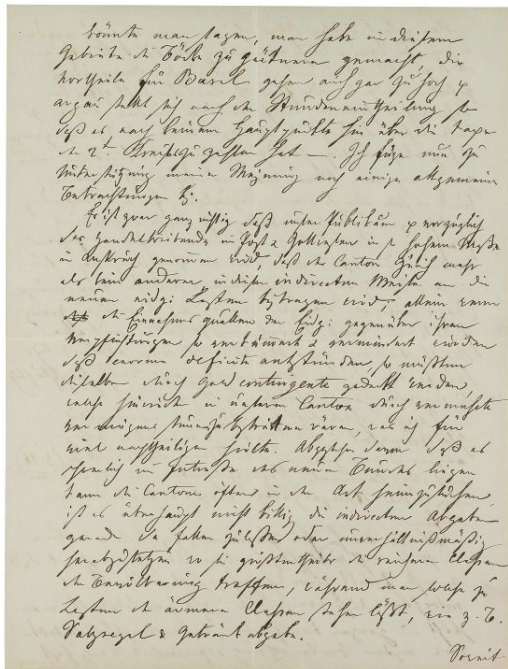 könnte man sagen, man habe in diesem
Gebiete die Böcke zu Gärtnern gemacht, die
Vortheile für Basel gehen auch gar zu hoch &
argau stellt sich nach der Stundeneintheilung so
daß es nach keinem Hauptpunkte hin über die taxe
zu zahlen hat —. Ich füge nun zu
Unterstützung meiner Meinung noch einige allgemeine
Betrachtungen bei.
Es ist zwar ganz richtig daß unser Publikum & vorzüglich
das Handeltreibende im Post & Zollwesen in hohem Maße
in Anspruch genommen wird, daß der Canton Zürich mehr
als kein anderer in dieser indirecten Weise an die
neuen eidg: Lasten beytragen wird; allein wenn
die Einnahmsquellen der Eidg: gegenüber ihren
Verpflichtungen so verkümmert & vermindert würden
daß enorme deficite entstünden, so müßten
dieselben durch Geldcontingente gedekt werden,
welche hinwieder in unserem Canton durch vermehrte
wären, was ich für
viel nachtheiliger hielte. Abgesehen davon daß es
schwerlich im Interesse des neuen Bundes liegen
kann die Cantone öfters in der Art heimzusuchen
ist es überhaupt nicht billig die indirecten Abgaben
gerade da fallen zu lassen oder unverhältnißmäßig
herabzusetzen wo sie größtentheils die reichern Classen
der Bevölkerung treffen, während man solche zu
Lasten der ärmern Classen stehen läßt, wie z. B.
Salzregal & Getränkabgabe.
Somit